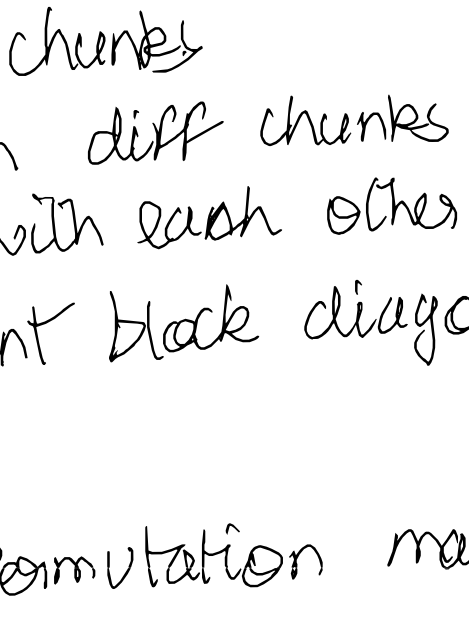 chunks
n diff chunks
with each other
nt block diago
ermutation ma